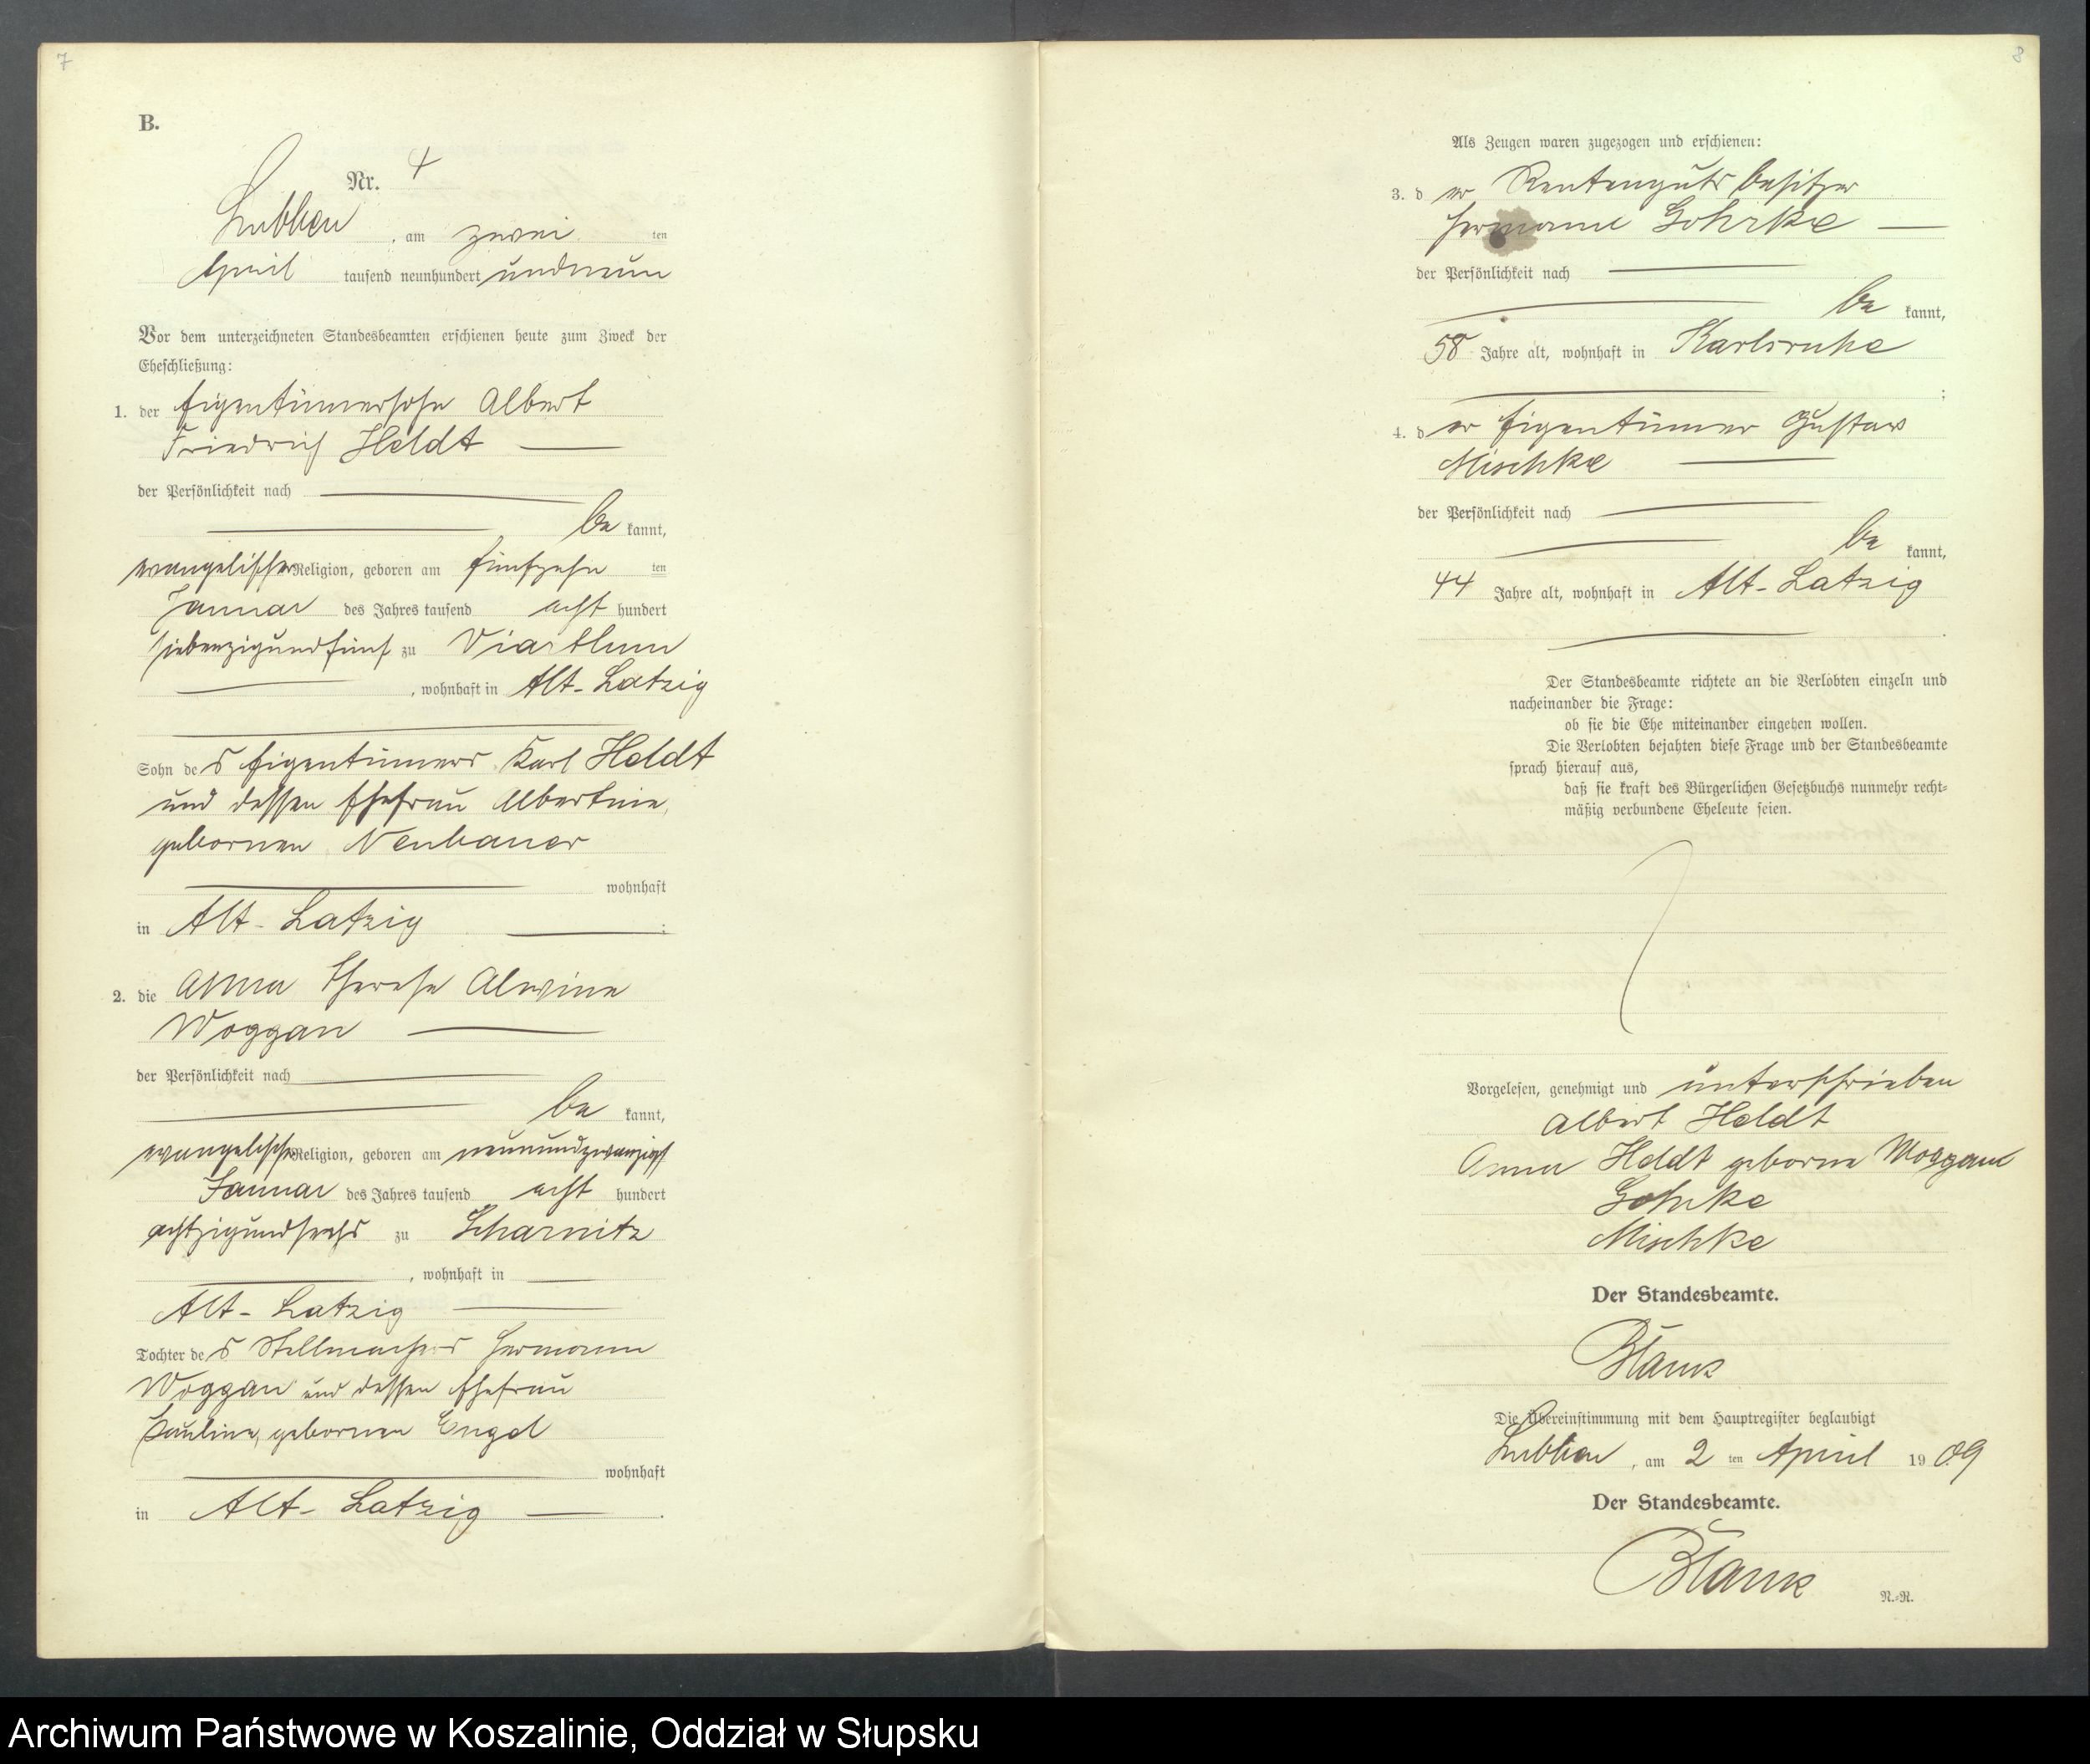 7
B.
Nr. 4
Lubben, am zwei ten
April tausend neunhundert undneun
Vor dem unterzeichneten Standesbeamten erschienen heute zum Zweck der
Eheschließung:
1. der Eigentümersohn Albert
Friedrich Heldt
der Persönlichkeit nach
be kannt,
evangelischer Religion, geboren am fünfzehn ten
Januar des Jahres tausend acht hundert
siebenzigundfünf zu Viartlum
, wohnhaft in Alt-Latzig
Sohn des Eigentümers Karl Heldt
und dessen Ehefrau Albertine,
gebornen Neubauer
wohnhaft
in Alt-Latzig ;
2. die Anna Therese Alwine
Woggan
der Persönlichkeit nach
be kannt,
evangelischer Religion, geboren am neunundzwanzigst
Januar des Jahres tausend acht hundert
achtzigundsechs zu Scharnitz
, wohnhaft in
Alt-Latzig
Tochter des Stellmachers Hermann
Woggan und dessen Ehefrau
Pauline, gebornen Engel
wohnhaft
in Alt-Latzig .
8
Als Zeugen waren zugezogen und erschienen:
3. der Rentengutsbesitzer
Hermann Gohrke
der Persönlichkeit nach
be kannt,
58 Jahre alt, wohnhaft in Karlsruhe
;
4. der Eigentümer Gustav
Mischke
der Persönlichkeit nach
be kannt,
44 Jahre alt, wohnhaft in Alt-Latzig
.
Der Standesbeamte richtete an die Verlobten einzeln und
nacheinander die Frage:
ob sie die Ehe miteinander eingehen wollen.
Die Verlobten bejahten diese Frage und der Standesbeamte
sprach hierauf aus,
daß sie kraft des Bürgerlichen Gesetzbuchs nunmehr recht-
mäßig verbundene Eheleute seien.
Vorgelesen, genehmigt und unterschrieben
Albert Heldt
Anna Heldt geborne Woggan
Gohrke
Mischke
Der Standesbeamte.
Blank
Die Übereinstimmung mit dem Hauptregister beglaubigt
Lubben, am 2 ten April 1909
Der Standesbeamte.
Blank
N.-R.
Archiwum Państwowe w Koszalinie, Oddział w Słupsku